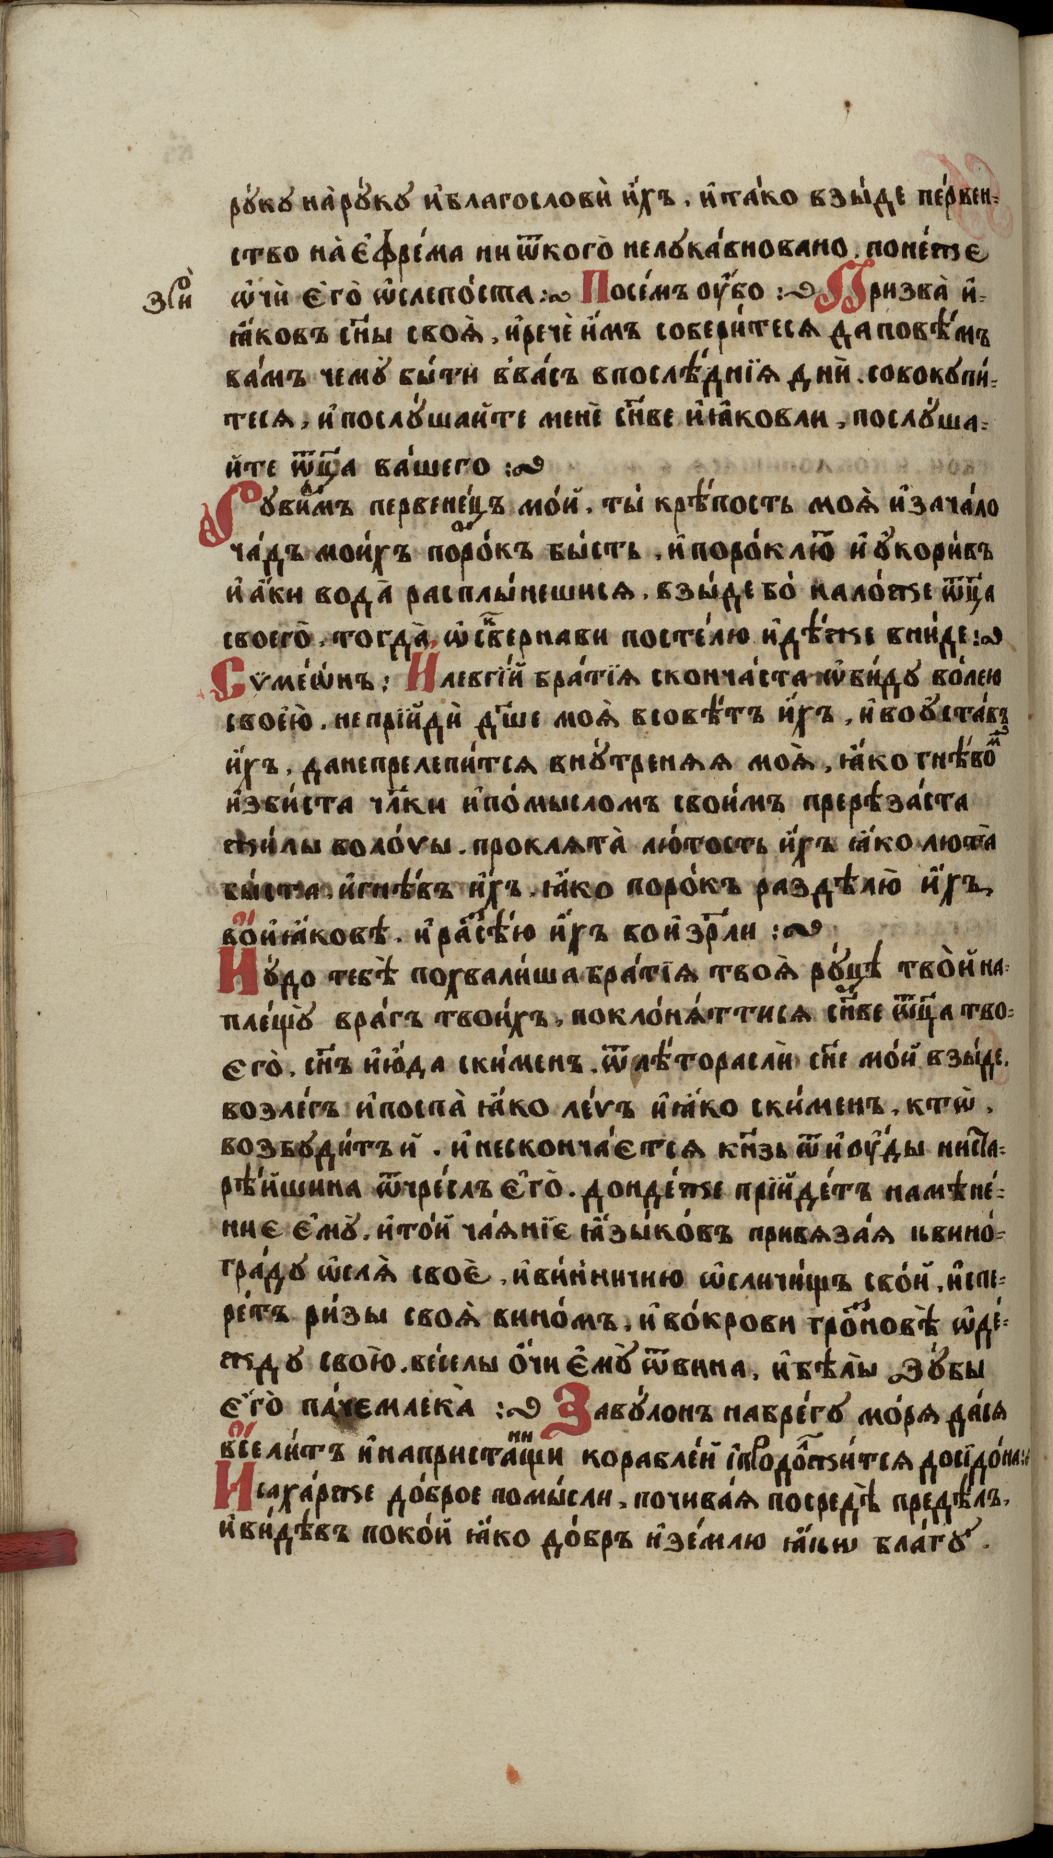 рꙋ́кꙋ на̀ рꙋ́кꙋ и҆благословѝ и҆́хъ . и҆та́ко взы́де пе́рвен-
ство на̀ є҆фре́ма ни ѿкого̀ нелꙋка́вновано . поне́же
зри ѡ҆́чи є҆го̀ ѡ҆слепо́ста :~ Посе́мъ ᲂу҆́бо :~ Призва̀ и҆-
ꙗ҆́ковъ сн҃ы своѧ̀ , и҆речѐ и҆́мъ собери́тесѧ да повѣ́мъ
ва́мъ чемꙋ̀ бы́ти в̾ва́съ впослѣ́днїѧ дни̑ . совокꙋпи́-
тесѧ , и҆послꙋ́шайте менѐ сн҃ве и҆ꙗ҆́ковли , послꙋ́ша-
йте ѿц҃а ва́шего :~
Рꙋви́мъ первене́цъ мо́й . ты̀ крѣ́пость моѧ̀ и҆зача́ло
ча́дъ мои́хъ поро́къ бы́сть , и҆поро́к лю́то и҆ ᲂу҆кори́въ
и҆ а҆́ки вода̀ расплы́нешисѧ . взы́де бо̀ нало́же ѿц҃а
своего̀ . тогда̀ ѡ҆скве́рнави посте́лю и҆дѣ́же вни́де :~
Сѵмеѡ́нъ ; И҆леѵгі́й бра́тїѧ сконча́ста ѡ҆би́дꙋ во́лею
своею̀ . непрїйдѝ дш҃е моѧ̀ всовѣ́тъ и҆́хъ , и҆воᲂу҆ста́въ
и҆́хъ , данеприлепи́тсѧ внꙋ́тренѧѧ моѧ̀ , ꙗ҆́ко гнѣ́вом
и҆зби́ста чл҃ки и҆по́мысломъ свои́мъ прерѣза́ста
жи́лы воло́вы . проклѧта̀ лю́тость и҆́хъ ꙗ҆́ко люта̀
бы́ста . и҆гнѣ́въ и҆́хъ . ꙗ҆́ко поро́къ раздѣлю̀ и҆́хъ ,
во́и҆ꙗ҆́ковѣ . и҆ разсѣ́ю и҆́хъ во и҆зр҃ли :~
И҆ю́до тебѐ похвали́ша бра́тїѧ твоѧ̀ рꙋ́цѣ твои̑ на-
плещꙋ̀ вра́гъ твои́хъ , покло́нѧттисѧ сн҃ве ѿц҃а тво-
его̀ . сн҃ъ и҆ю́да ски́менъ . ѿлѣ́тораслѝ сн҃е мо́й взы́де .
возле́гъ и҆поспа̀ ꙗ҆́ко ле́ѵъ и҆ꙗ҆́ко ски́менъ . кто̀ ,
возбꙋди́тъ и҆̀ . и҆ несконча́єтсѧ кн҃зь ѿ и҆ᲂу҆́ды ни ста-
рѣ́йшина ѿчре́слъ є҆го̀ . донде́же прїйде́тъ намѣне́-
ниє є҆мꙋ̀ . и҆то́й ча́ѧнїе ꙗ҆зыко́въ привѧза́ѧ квино́-
гра́дꙋ ѡ҆слѧ̀ своѐ , и҆ви́ничию ѡ҆сличи́щъ сво́й , и҆спе-
ре́тъ ри́зы своѧ̀ вино́мъ , и҆ во́крови гро́зновѣ ѡ҆де́-
ждꙋ свою̀ . ве́селы ѻ҆́чи є҆мꙋ̀ ѿвина , и҆ бѣлы̀ зꙋ́бы
є҆го̀ па́чемлека̀ :~ Завꙋ́лонъ набре́гꙋ мо́рѧ да́сѧ
всели́тъ и҆ напристанищи корабле́й и҆продолжи́тсѧ досїдо́на :
И҆саха́рже до́брое помы́сли , почива́ѧ посредѣ̀ предѣ́лъ ,
и҆ви́дѣвъ поко́й ꙗ҆́ко до́бръ и҆зе́млю ꙗ҆́кѡ бла́гꙋ .